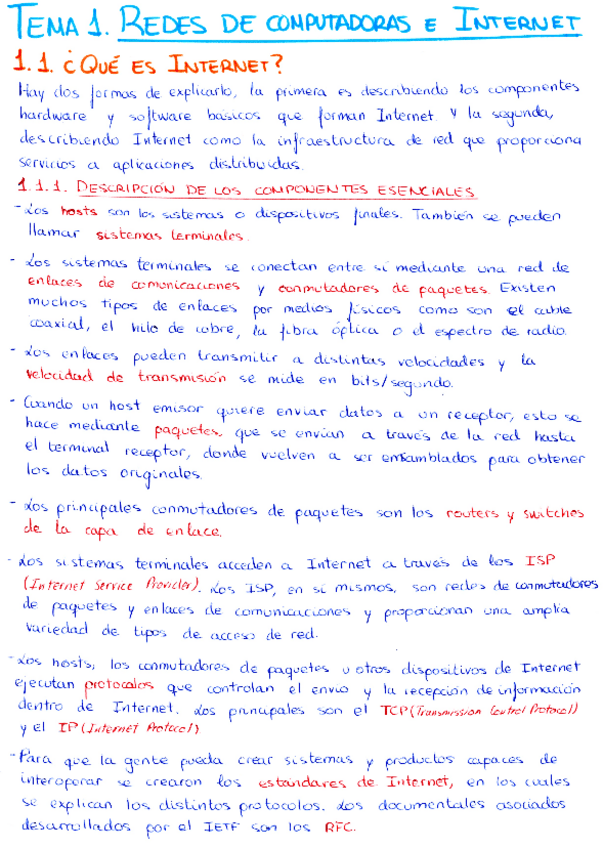 TEMA 1. REDES DE COMPUTADORAS E INTERNET
1.1. ¿QUÉ ES INTERNET?
Hay dos formas de explicarlo, la primera es describiendo los componentes
hardware y software básicos que forman Internet. Y la segunda,
describiendo Internet como la infraestructura de red que proporciona
servicios a aplicaciones distribuidas.
1.1.1. DESCRIPCIÓN DE LOS COMPONENTES ESENCIALES
- Los hosts son los sistemas o dispositivos finales. También se pueden
llamar sistemas terminales.
- Los sistemas terminales se conectan entre sí mediante una red de
enlaces de comunicaciones y conmutadores de paquetes. Existen
muchos tipos de enlaces por medios físicos como son el cable
coaxial, el hilo de cobre, la fibra óptica o el espectro de radio.
- Los enlaces pueden transmitir a distintas velocidades y la
velocidad de transmisión se mide en bits/segundo.
- Cuando un host emisor quiere enviar datos a un receptor, esto se
hace mediante paquetes, que se envían a través de la red hasta
el terminal receptor, donde vuelven a ser emsamblados para obtener
los datos originales.
- Los principales conmutadores de paquetes son los routers y switches
de la capa de enlace.
- Los sistemas terminales acceden a Internet a través de los ISP
(Internet Service Provider). Los ISP, en sí mismos, son redes de conmutadores
de paquetes y enlaces de comunicaciones y proporcionan una amplia
variedad de tipos de acceso de red.
- Los hosts, los conmutadores de paquetes u otros dispositivos de Internet
ejecutan protocolos que controlan el envío y la recepción de información
dentro de Internet. Los principales son el TCP (Transmission Control Protocol)
y el IP (Internet Protocol)
- Para que la gente pueda crear sistemas y productos capaces de
interoperar se crearon los estándares de Internet, en los cuales
se explican los distintos protocolos. Los documentales asociados
desarrollados por el IETF son los RFC.